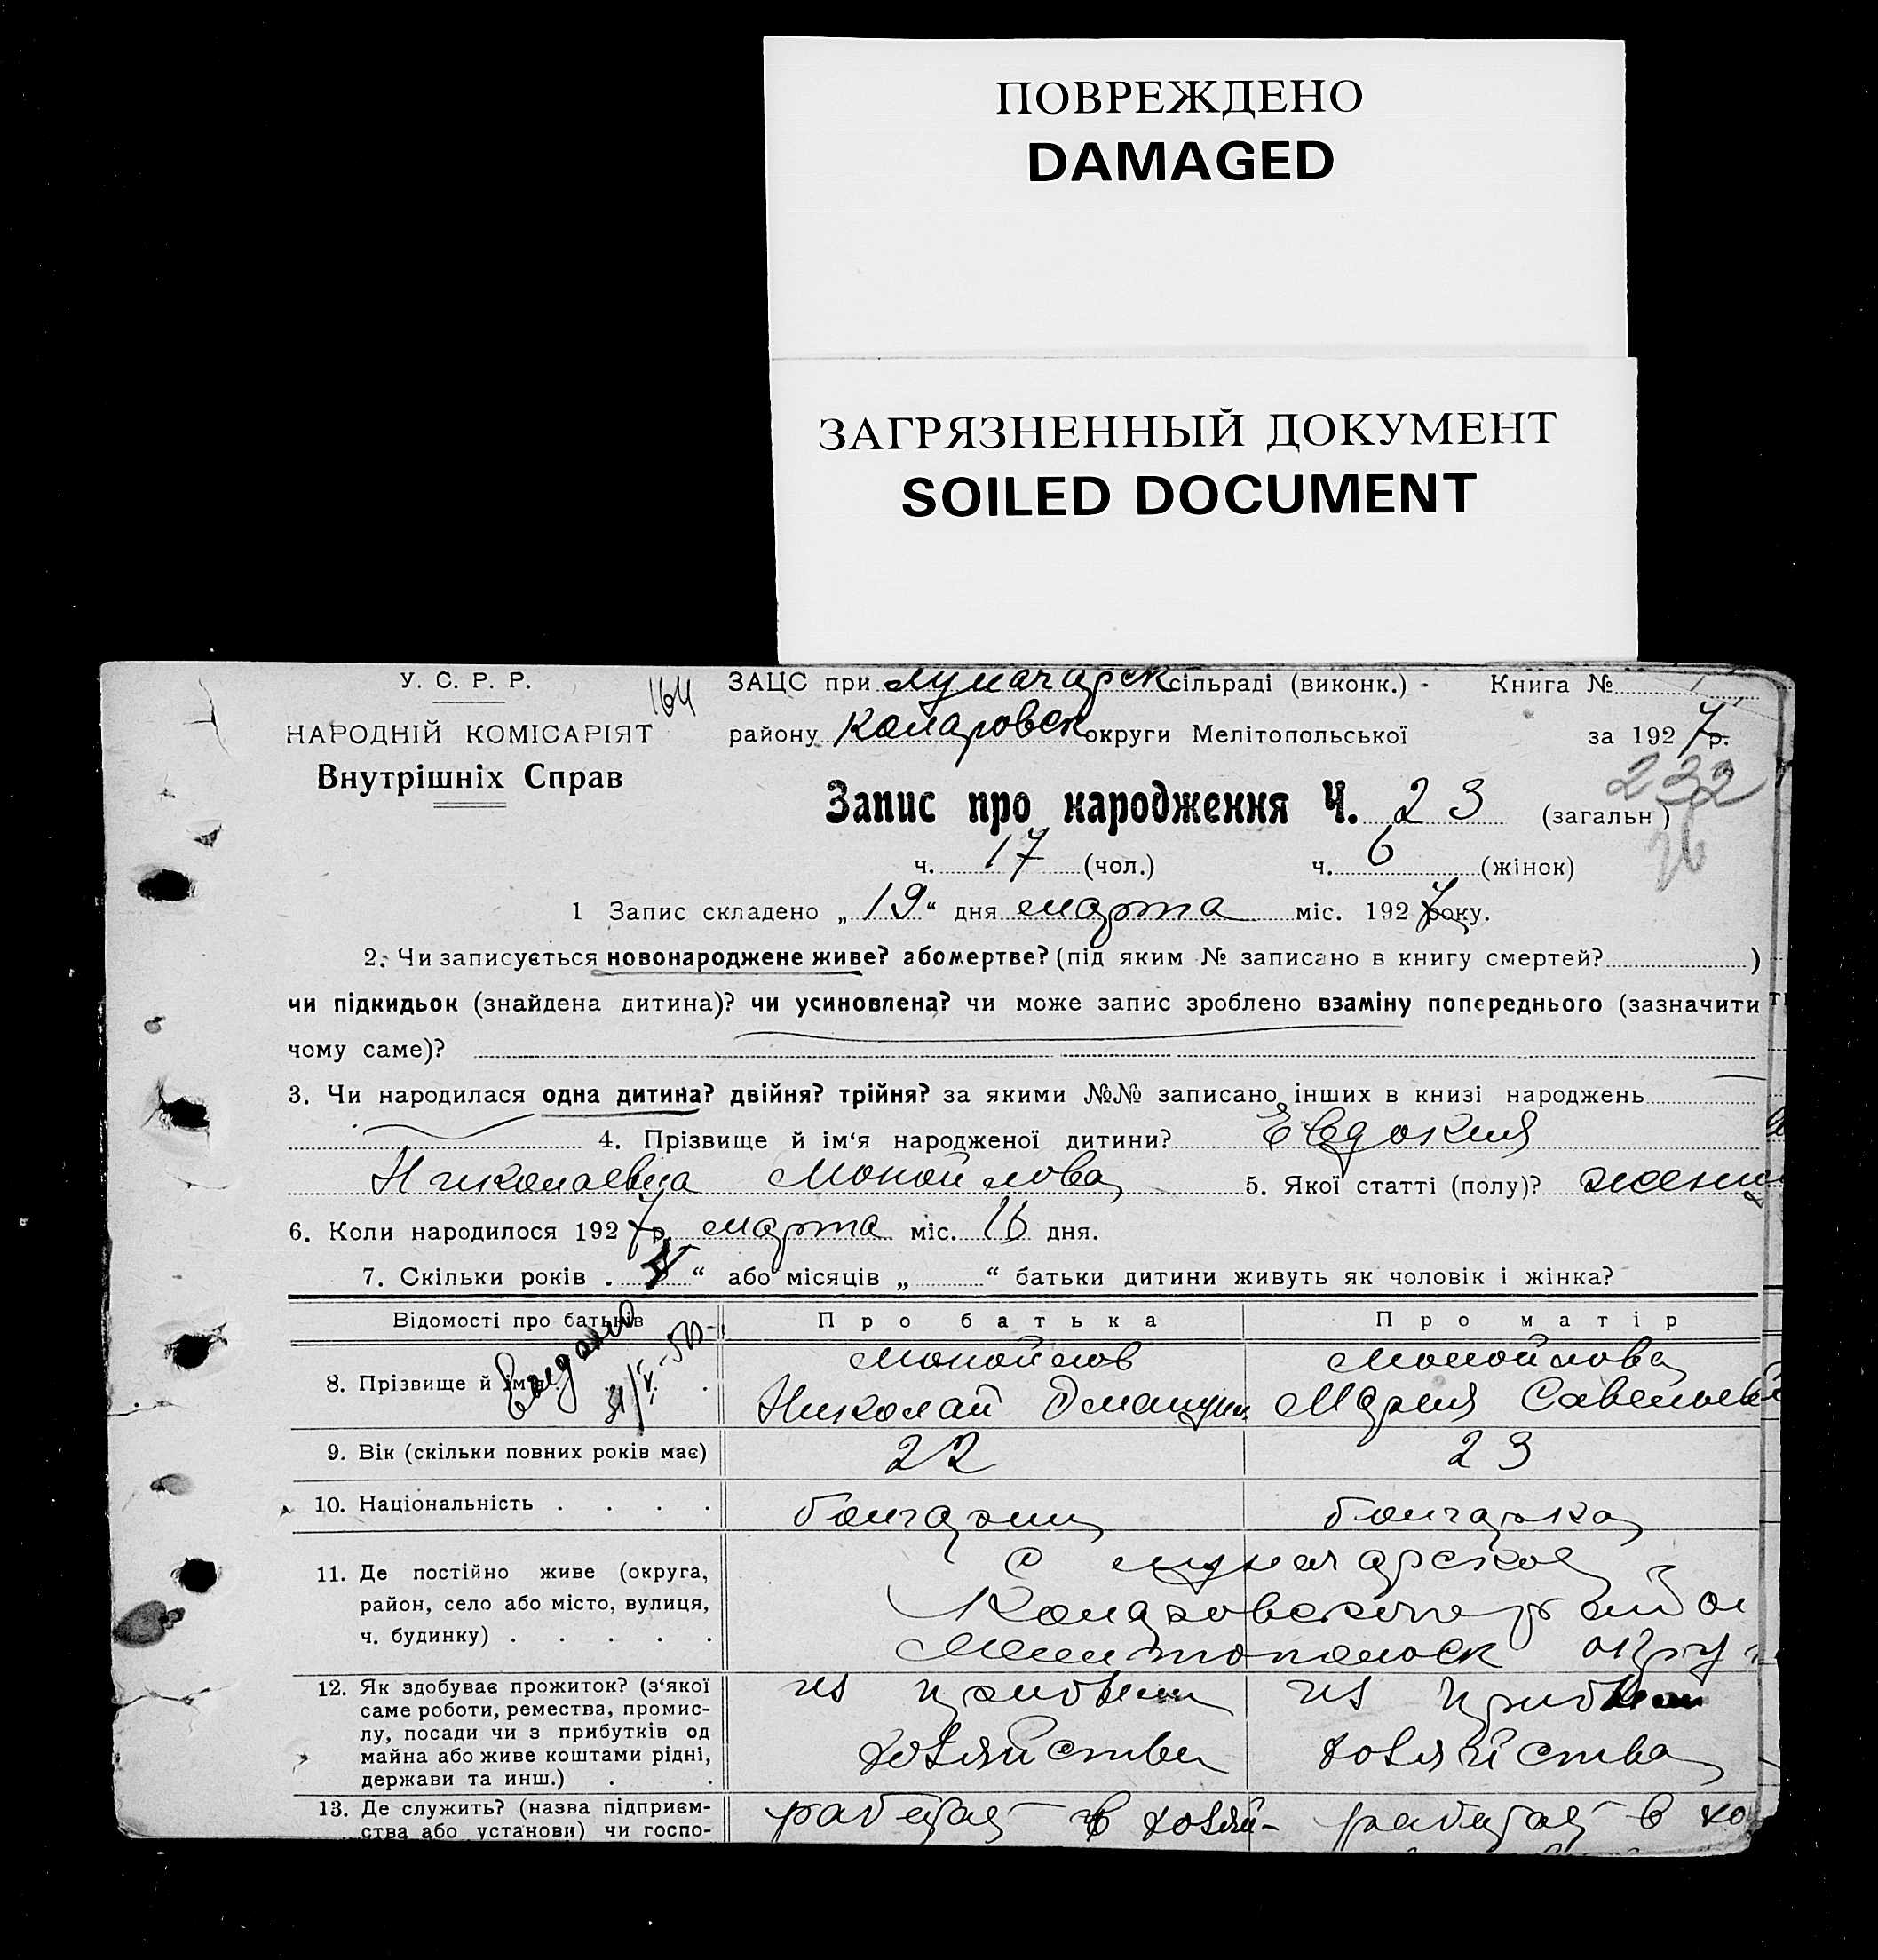 ПОВРЕЖДЕНО
DAMAGED
ЗАГРЯЗНЕННЫЙ ДОКУМЕНТ
SOILED DOCUMENT
У. С. Р. Р.
164
ЗАЦС при Луначарск сільраді (виконк.)
Книга № 1
НАРОДНІЙ КОМІСАРІЯТ
району Коларовск округи Мелітопольської
за 1927 р.
Внутрішніх Справ
232
Запис про народження Ч. 23 (загальн)
ч. 17 (чол.) ч. 6 (жінок)
1 Запис складено „19“ дня марта міс. 1927 року.
2. Чи записується новонароджене живе? або мертве? (під яким № записано в книгу смертей? )
чи підкидьок (знайдена дитина)? чи усиновлена? чи може запис зроблено взаміну попереднього (зазначити
чому саме)?
3. Чи народилася одна дитина? двійня? трійня? за якими №№ записано інших в книзі народжень
4. Прізвище й ім‘я народженої дитини? Евдокия
Николаевна Монойлова 5. Якої статті (полу)?
6. Коли народилося 1927 р. марта міс. 16 дня.
7. Скільки років . “ або місяців „ “ батьки дитини живуть як чоловік і жінка?
Відомості про батьків
Про батька
Про матір
8. Прізвище й ім‘я
Монойлов
Николай
Монойлова
Мария Савельев
9. Вік (скільки повних років має)
22
23
10. Національність . . . .
болгарин
болгарка
11. Де постійно живе (округа,
район, село або місто, вулиця,
ч. будинку) . . . . .
с Луначарское
Коларовского район
Мелитопольск окру
12. Як здобуває прожиток? (з‘якої
саме роботи, ремества, промис-
лу, посади чи з прибутків од
майна або живе коштами рідні,
держави та инш.) . .
хозяйства
хозяйства
13. Де служить? (назва підприєм-
ства або установи) чи госпо-
работает в хозяй-
работает в хо